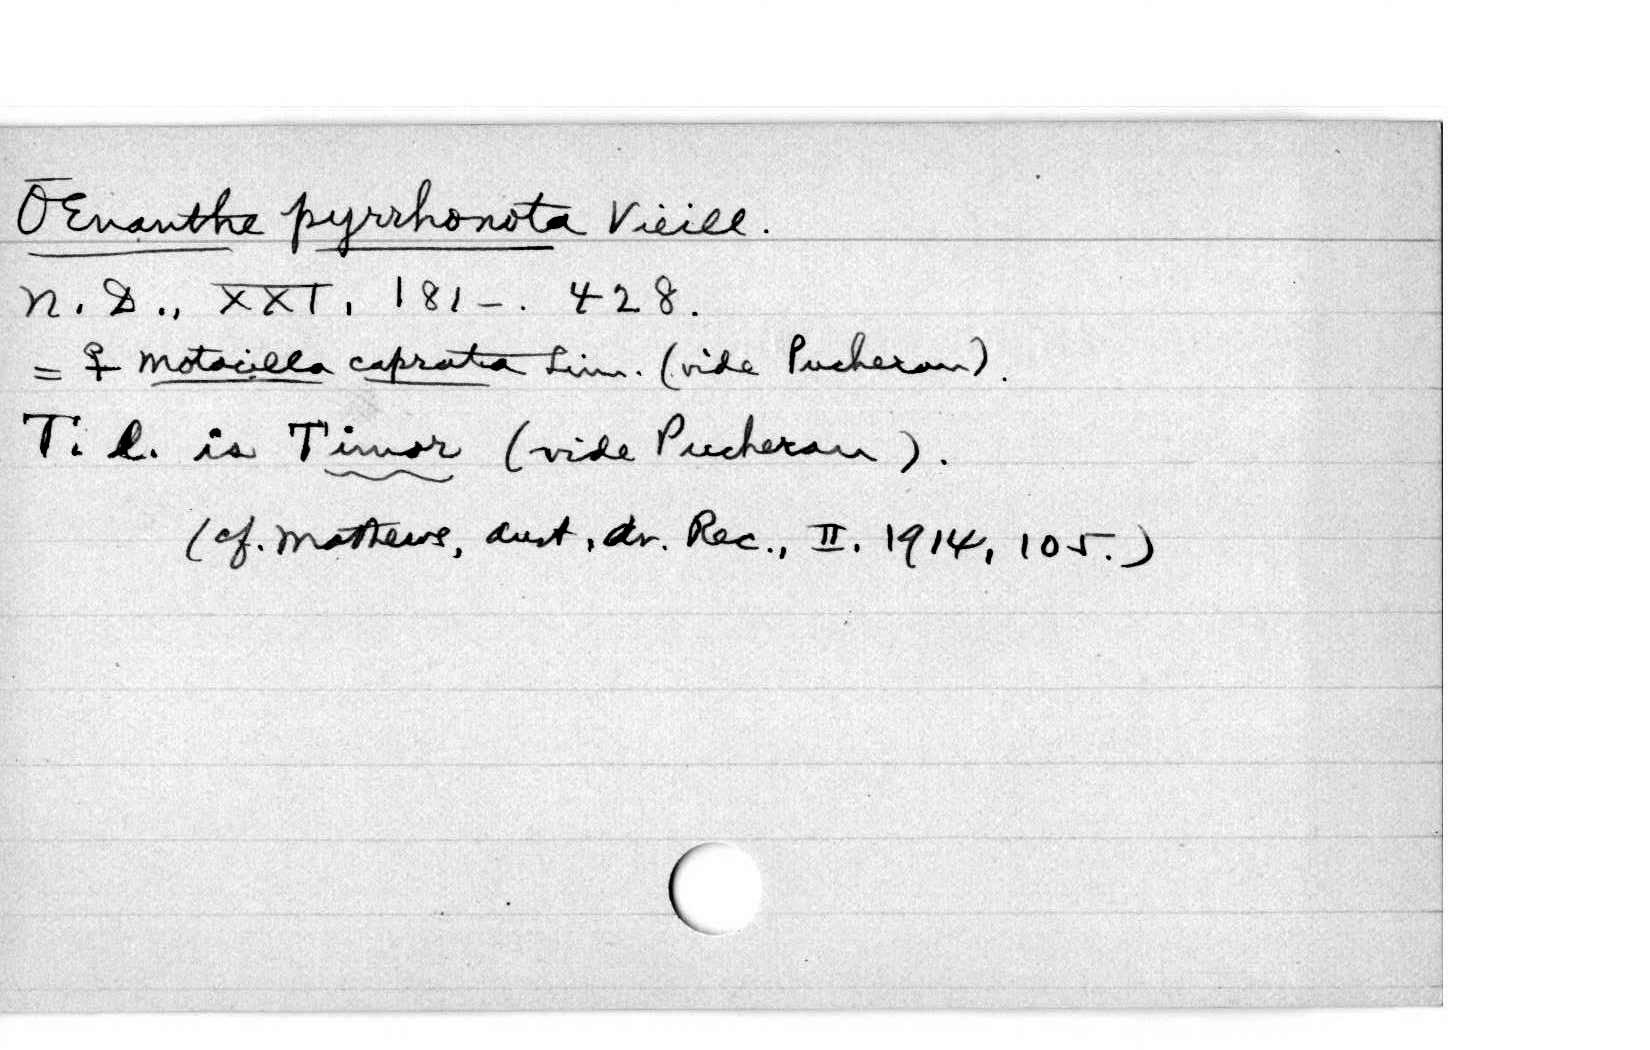 OEnanthe pyrrhonota Vieill.
N. D., XXI, 181-. 428.
= ♀ Motacilla caprata Linn. (vide Pucheran).
T. l. is Timor (vide Pucheran).
(cf. Mathews, Aust. Av. Rec., II. 1914, 105.)